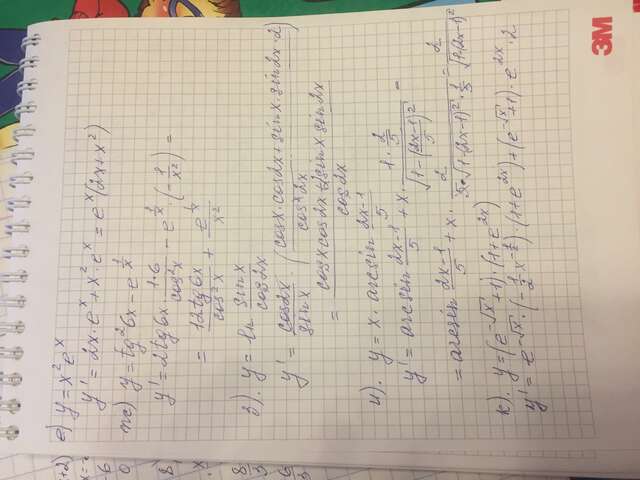 е) y = x² eˣ
y' = 2x · eˣ + x² · eˣ = eˣ (2x + x²)
ж) y = tg² 6x − e^(1/x)
y' = 2 tg 6x · (1·6)/(cos² x) − e^(1/x) · (−1/x²) =
= (12 tg 6x)/(cos² x) + (e^(1/x))/(x²)
з). y = ln (sin x)/(cos 2x)
y' = (cos 2x)/(sin x) · (cos x · cos 2x + sin x · sin 2x · 2)/(cos² 2x)
= (cos x cos 2x + 2 sin x sin 2x)/(cos 2x)
и). y = x · arcsin (2x−1)/5
y' = arcsin (2x−1)/5 + x · (1 · 2/5)/√(1−((2x−1)/5)²) =
= arcsin (2x−1)/5 + x ·
к). y = (e^(−√x) + 1) · (1 + e^(2x))
y' = e^(−√x) · (−1/2 x^(−1/2)) · (1 + e^(2x)) + (e^(−√x) + 1) · e^(2x) · 2
3M